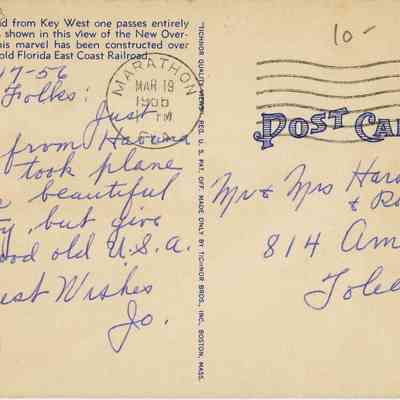 nd from Key West one passes entirely
s shown in this view of the New Over-
his marvel has been constructed over
old Florida East Coast Railroad.
17-56
Folks:
Just
from Havana
took plane
beautiful
y, but give
ood old U.S.A.
est Wishes
Jo.
TICHNOR QUALITY VIEWS, REG. U. S. PAT. OFF. MADE ONLY BY TICHNOR BROS., INC., BOSTON, MASS.
MARATHON
MAR 19
PM
1956
FLA.
10-
POST CA
Mr & Mrs Hara
&
814 Am
Tole